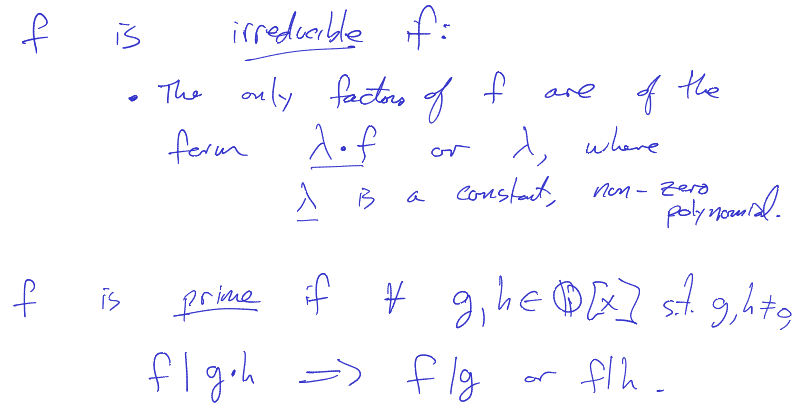 f is irreducible if:
• The only factors of f are of the
form λ·f or λ, where
λ is a constant, non-zero
polynomial.
f is prime if ∀ g,h ∈ ℚ[x] s.t. g,h≠0,
f | g·h ⟹ f|g or f|h.